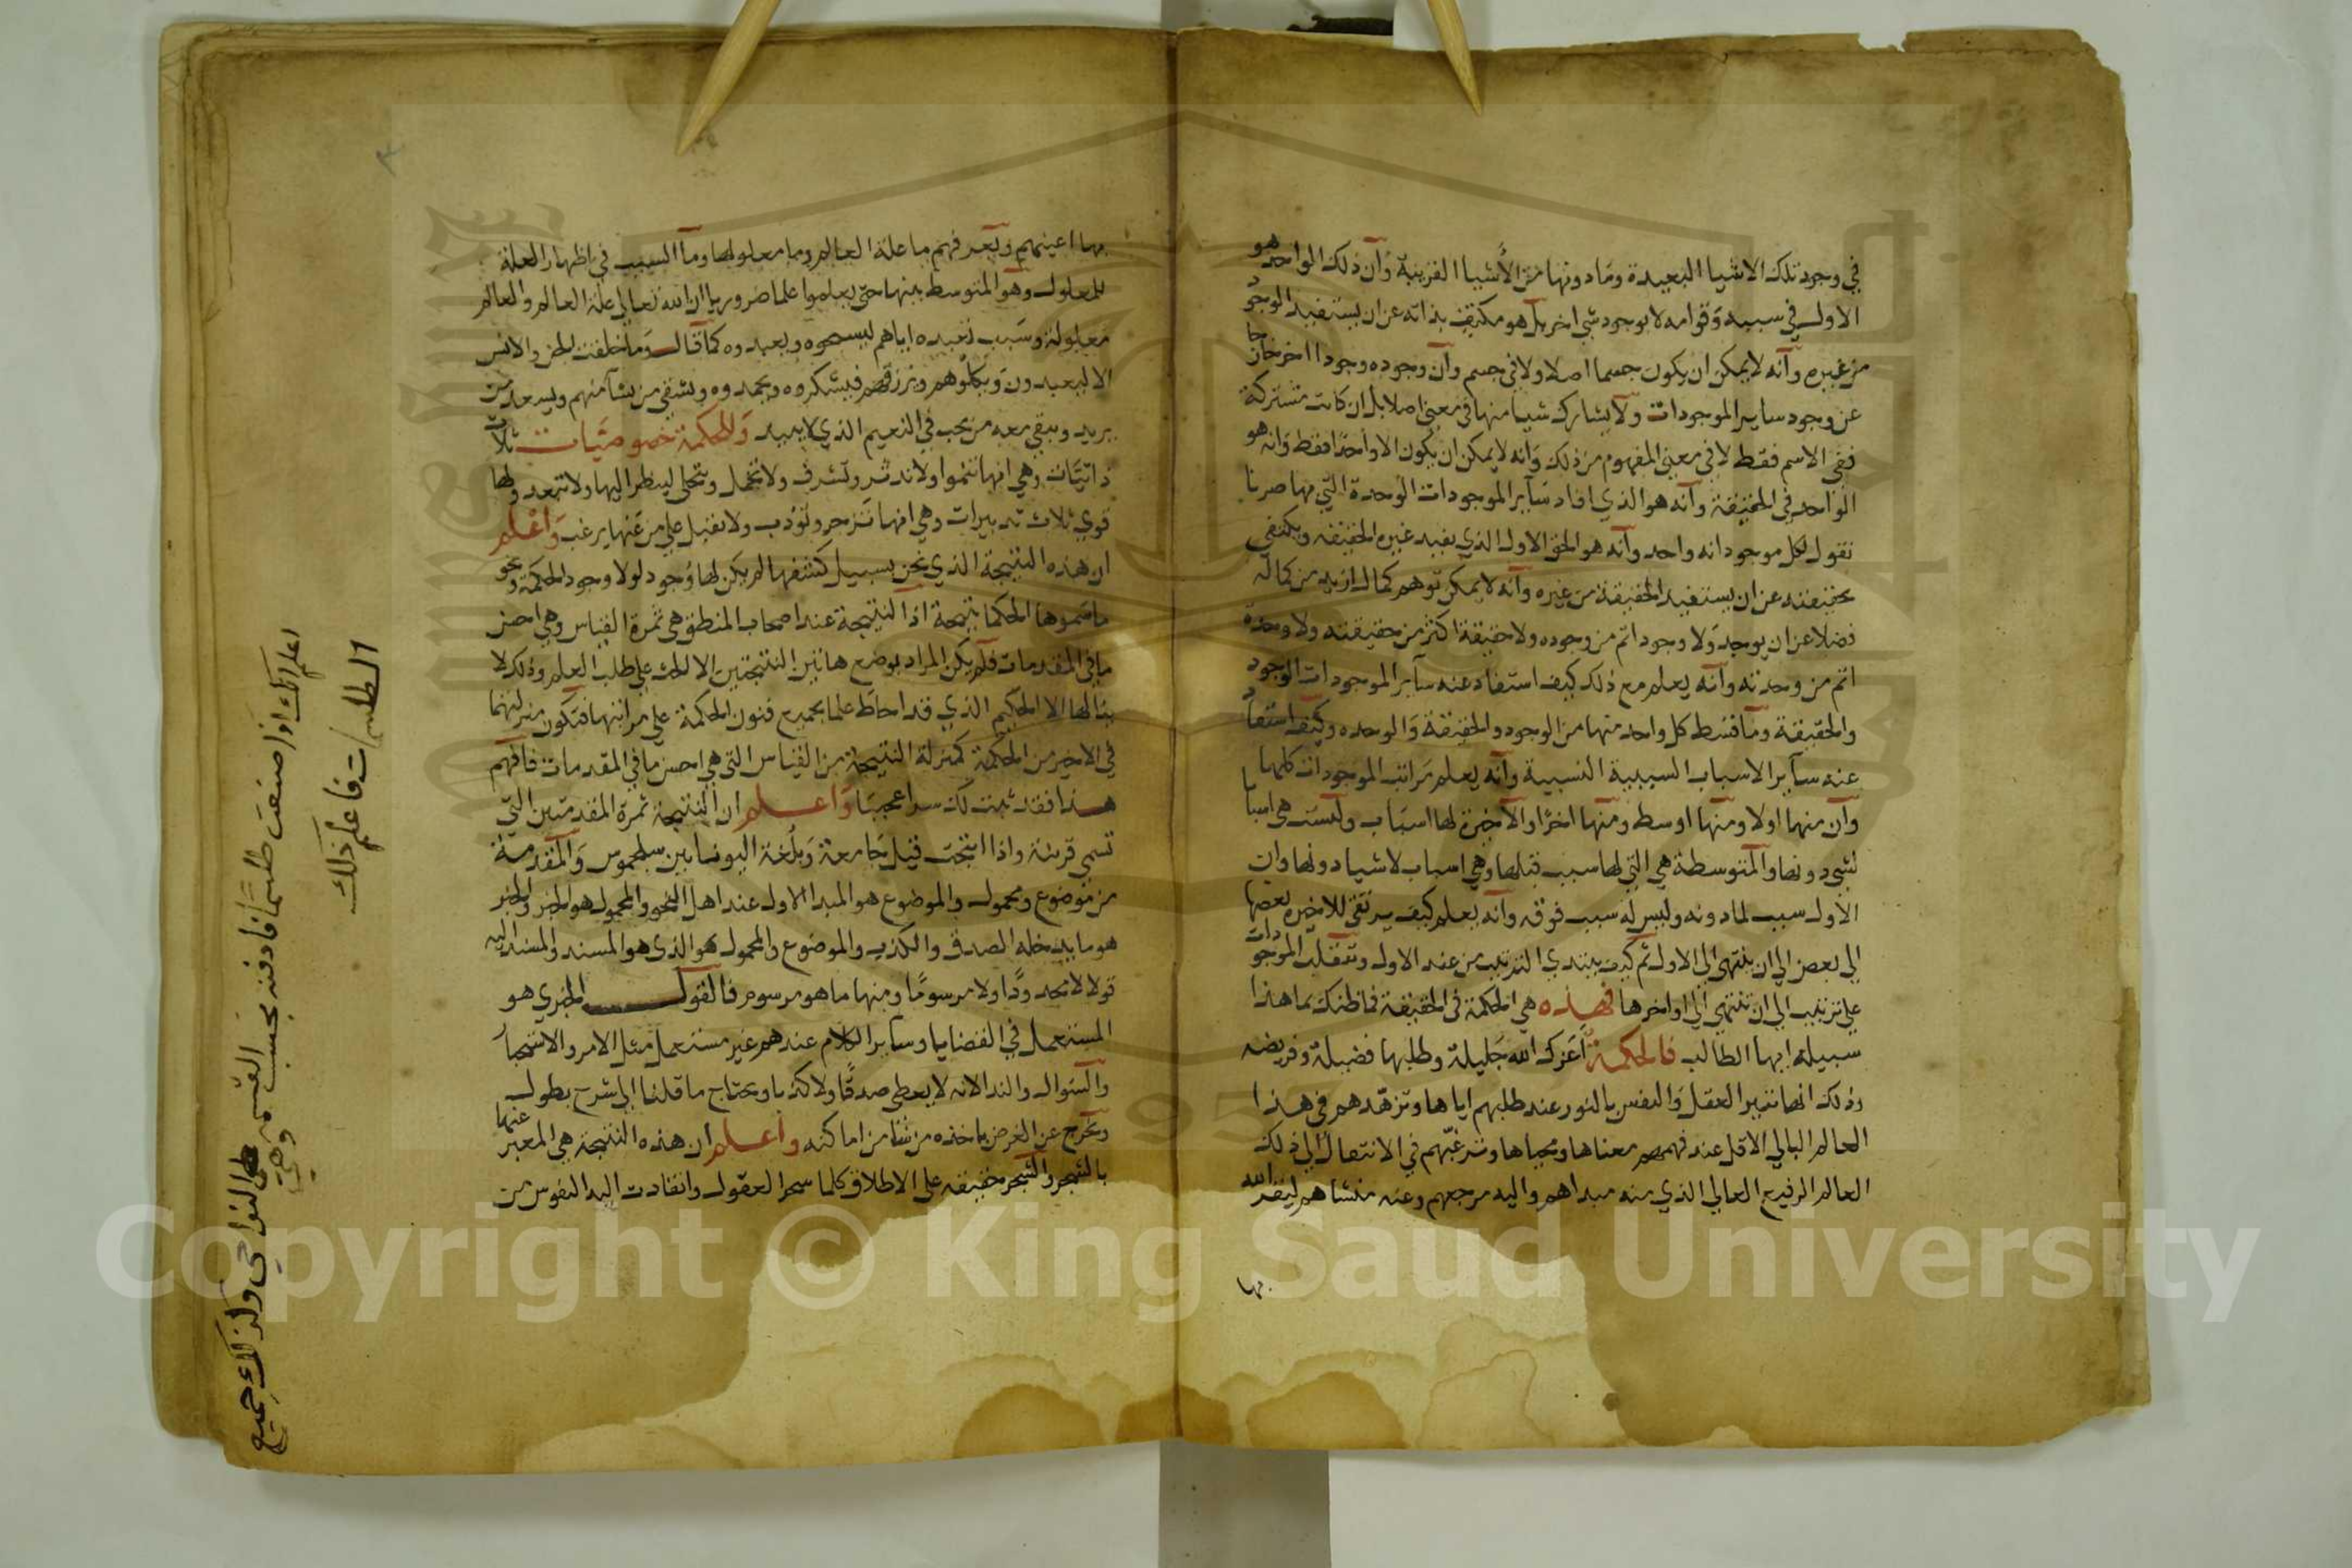 في وجود تلك الاشيا البعيدة وما دونها من الأشيا القريبة وأن ذلك الواحد هو
الاول في سببه وقوامه لا بوجود شي اخر بل هو مكتف بذاته عن ان يستفيد الوجود
من غيره وأنه لا يمكن ان يكون جسما اصلا ولا في جسم وأن وجوده وجود اخر خارجا
عن وجود ساير الموجودات ولا يشارك شيا منها في معنى اصلا بل ان كانت مشتركة
ففي الاسم فقط لا في معنى المفهوم من ذلك وانه لا يمكن ان يكون الا واحدا فقط وانه هو
الواحد في الحقيقة وأنه هو الذي افاد سآير الموجودات الوحدة التي بها صرنا
نقول لكل موجود انه واحد وآنه هو الحق الاول الذي يفيد غيره الحقيقه ويكتفي
بحقيقته عن ان يستفيد الحقيقة من غيره وآنه لا يمكن توهم كمال ازيد من كماله
فضلا عن ان يوجد ولا وجود اتم من وجوده ولا حقيقة اكثر من حقيقته ولا وحدة
اتم من وحدته وآنه يعلم مع ذلك كيف استفاد عنه سآير الموجودات الوجود
والحقيقة وما قسط كل واحد منها من الوجود والحقيقة والوحده وكيف استفاد
عنه سآير الاسباب السببية النسبية وآنه يعلم مراتب الموجودات كلها
وآن منها اولا ومنها اوسط ومنها اخرا والآخيرة لها اسباب وليست هي اسبابا
لشي دونها والمتوسطة هي التي لها سبب قبلها وهي اسباب لاشيا دونها وان
الأول سبب لما دونه وليس له سبب فوقه وآنه يعلم كيف يرتقي للاخيره بعضها
الي بعض الي ان ينتهي الي الاول ثم كيف يبتدي الترتيب من عند الاول وتنقلب الموجودات
علي ترتيب الي ان تنتهي الي اواخرها فهذه هي الحكمة في الحقيقة فما ظنك بما هذا
سبيله ايها الطالب فالحكمة أعزك الله جليلة وطلبها فضيلة وفريضه
وذلك انها تنير العقل والنفس بالنور عند طلبهم اياها وتزهدهم في هذا
العالم البالي الاقل عند فهمهم معناها ومحياها وترغبهم في الانتقال الي ذلك
العالم الرفيع العالي الذي منه مبداهم واليه مرجعهم وعنه منشاهم ليقر الله
بها
بها اعينهم وبعد فهم ما علة العالم وما معلولها وما السبب في اظهار العلة
للمعلول وهو المتوسط بينها حتى يعلموا علما ضروريا ان الله تعالي علة العالم والعالم
معلوله وسبب تعبده اياهم ليسبحوه ويعبدوه كما قال وما خلقت الجن والانس
الا ليعبدون ويكلوهم ويرزقهم فيشكروه ويحمدوه ويشقي من يشآ منهم ويسعد من
يريد ويبقي معه من يحب في النعيم الذي لا يبيد وللحكمة خصوصيات ثلاث
ذاتيات وهي انها تنموا ولا تدثر وتشرف ولا تخمل وتتحلى لينظر اليها ولا تبعد ولها
قوي ثلاث تدبيرات وهي انها تزجر وتؤدب ولا تقبل علي من عنها يرغب وأعلم
ان هذه النتيجة الذي نحن بسبيل كشفها لم يكن لها وجود لولا وجود الحكمة ونحو
ما سموها الحكما نتيجة اذا النتيجة عند اصحاب المنطق هي ثمرة القياس وهي احسن
ما في المقدمات فلم يكن المراد بوضع هاتين النتيجتين الا للحث علي طلب العلم وذلك لا
ينالها الا الحكيم الذي قد احاط علما بجميع فنون الحكمة علي مراتبها فتكون منزلتهما
في الاخير من الحكمة كمنزلة النتيجة من القياس التي هي احسن ما في المقدمات فافهم
هذا فقد ثبت لك سرا عجيبا واعلم ان النتيجة ثمرة المقدمتين التي
تسمي قرينة واذا انتجت قيل جامعة وبلغة اليونانيين سلجموس والمقدمة
من موضوع ومحمول والموضوع هو المبدا الاول عند اهل النحو والمحمول هو الخبر والخبر
هو ما يدخله الصدق والكذب والموضوع والمحمول هو الذي هو المسند والمسند اليه
قولا لا محدودا ولا مرسوما ومنها ما هو مرسوم فالقول الخبري هو
المستعمل في القضايا وسآير الكلام عندهم غير مستعمل مثل الامر والاستخبار
والسوال والندا لانه لا يعطي صدقا ولا كذبا ويحتاج ما قلنا الي شرح يطول
ويخرج عن الغرض ياخذه من شا من اماكنه واعلم ان هذه النتيجة هي المعبر عنها
بالسحر والسحر حقيقه علي الاطلاق كلما سحر العقول وانقادت اليه النفوس من
اعلم انك اذا صنعت طلسما فادفنه بحسب القسمه وهي
علي النواحي وكذلك جميع
الطلسمات فاعلم ذلك
Copyright © King Saud University